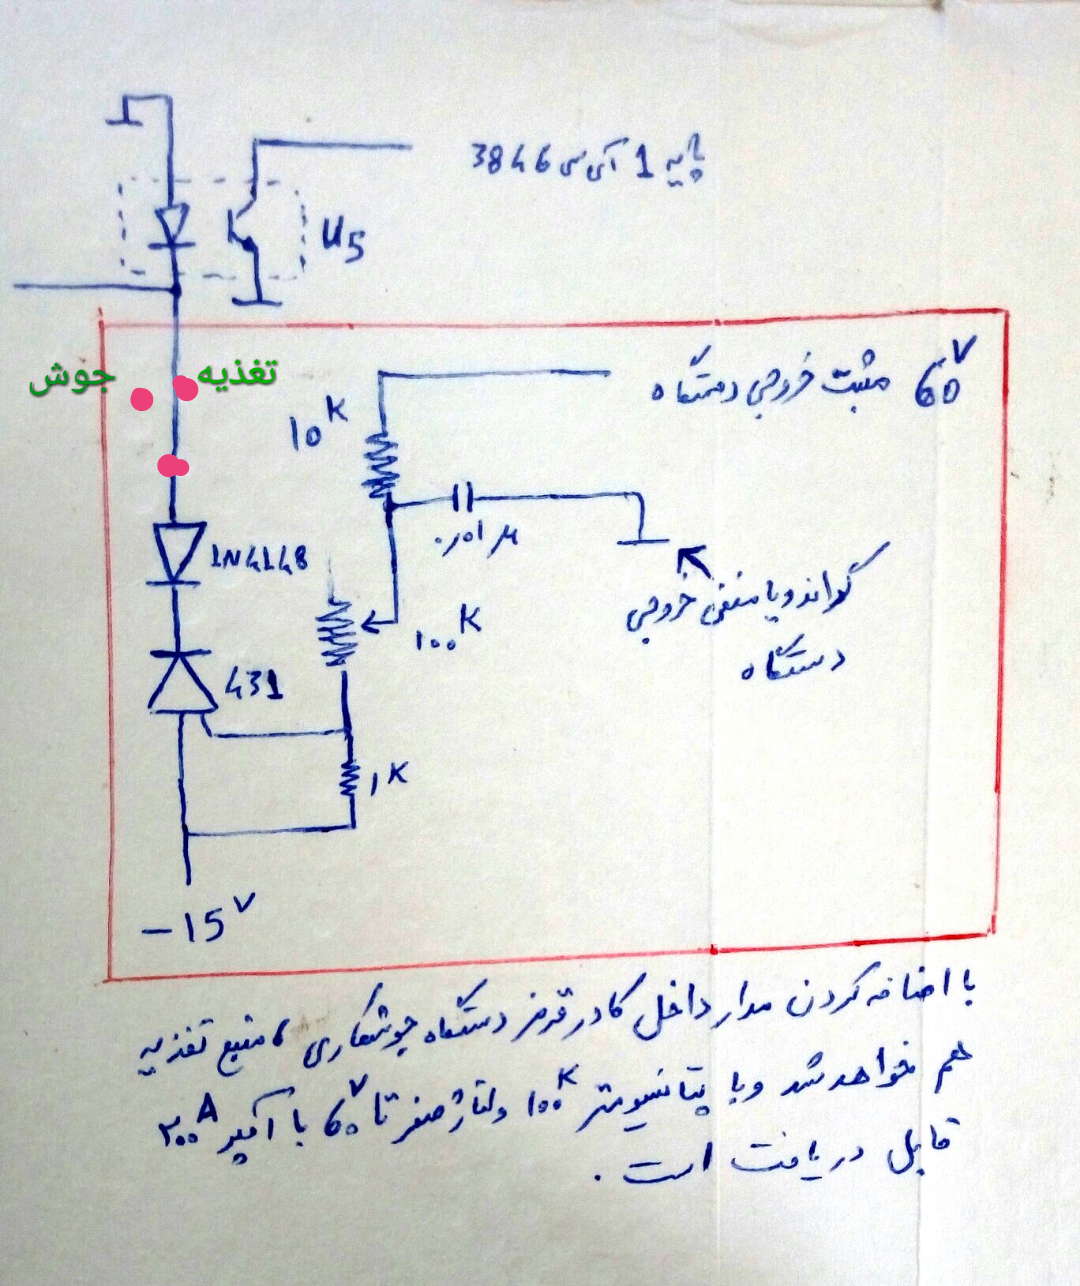 پایه 1 آی سی 3846
U5
جوش
تغذیه
60V مثبت خروجی دستگاه
10K
1N4148
۰٫۰۱µ
100K
گراند و یا منفی خروجی
دستگاه
431
1K
-15V
با اضافه کردن مدار داخل کادر قرمز دستگاه جوشکاری، منبع تغذیه
هم خواهد شد و با پتانسیومتر 100K ولتاژ صفر تا 60V با آمپر ۲۰۰A
قابل دریافت است.